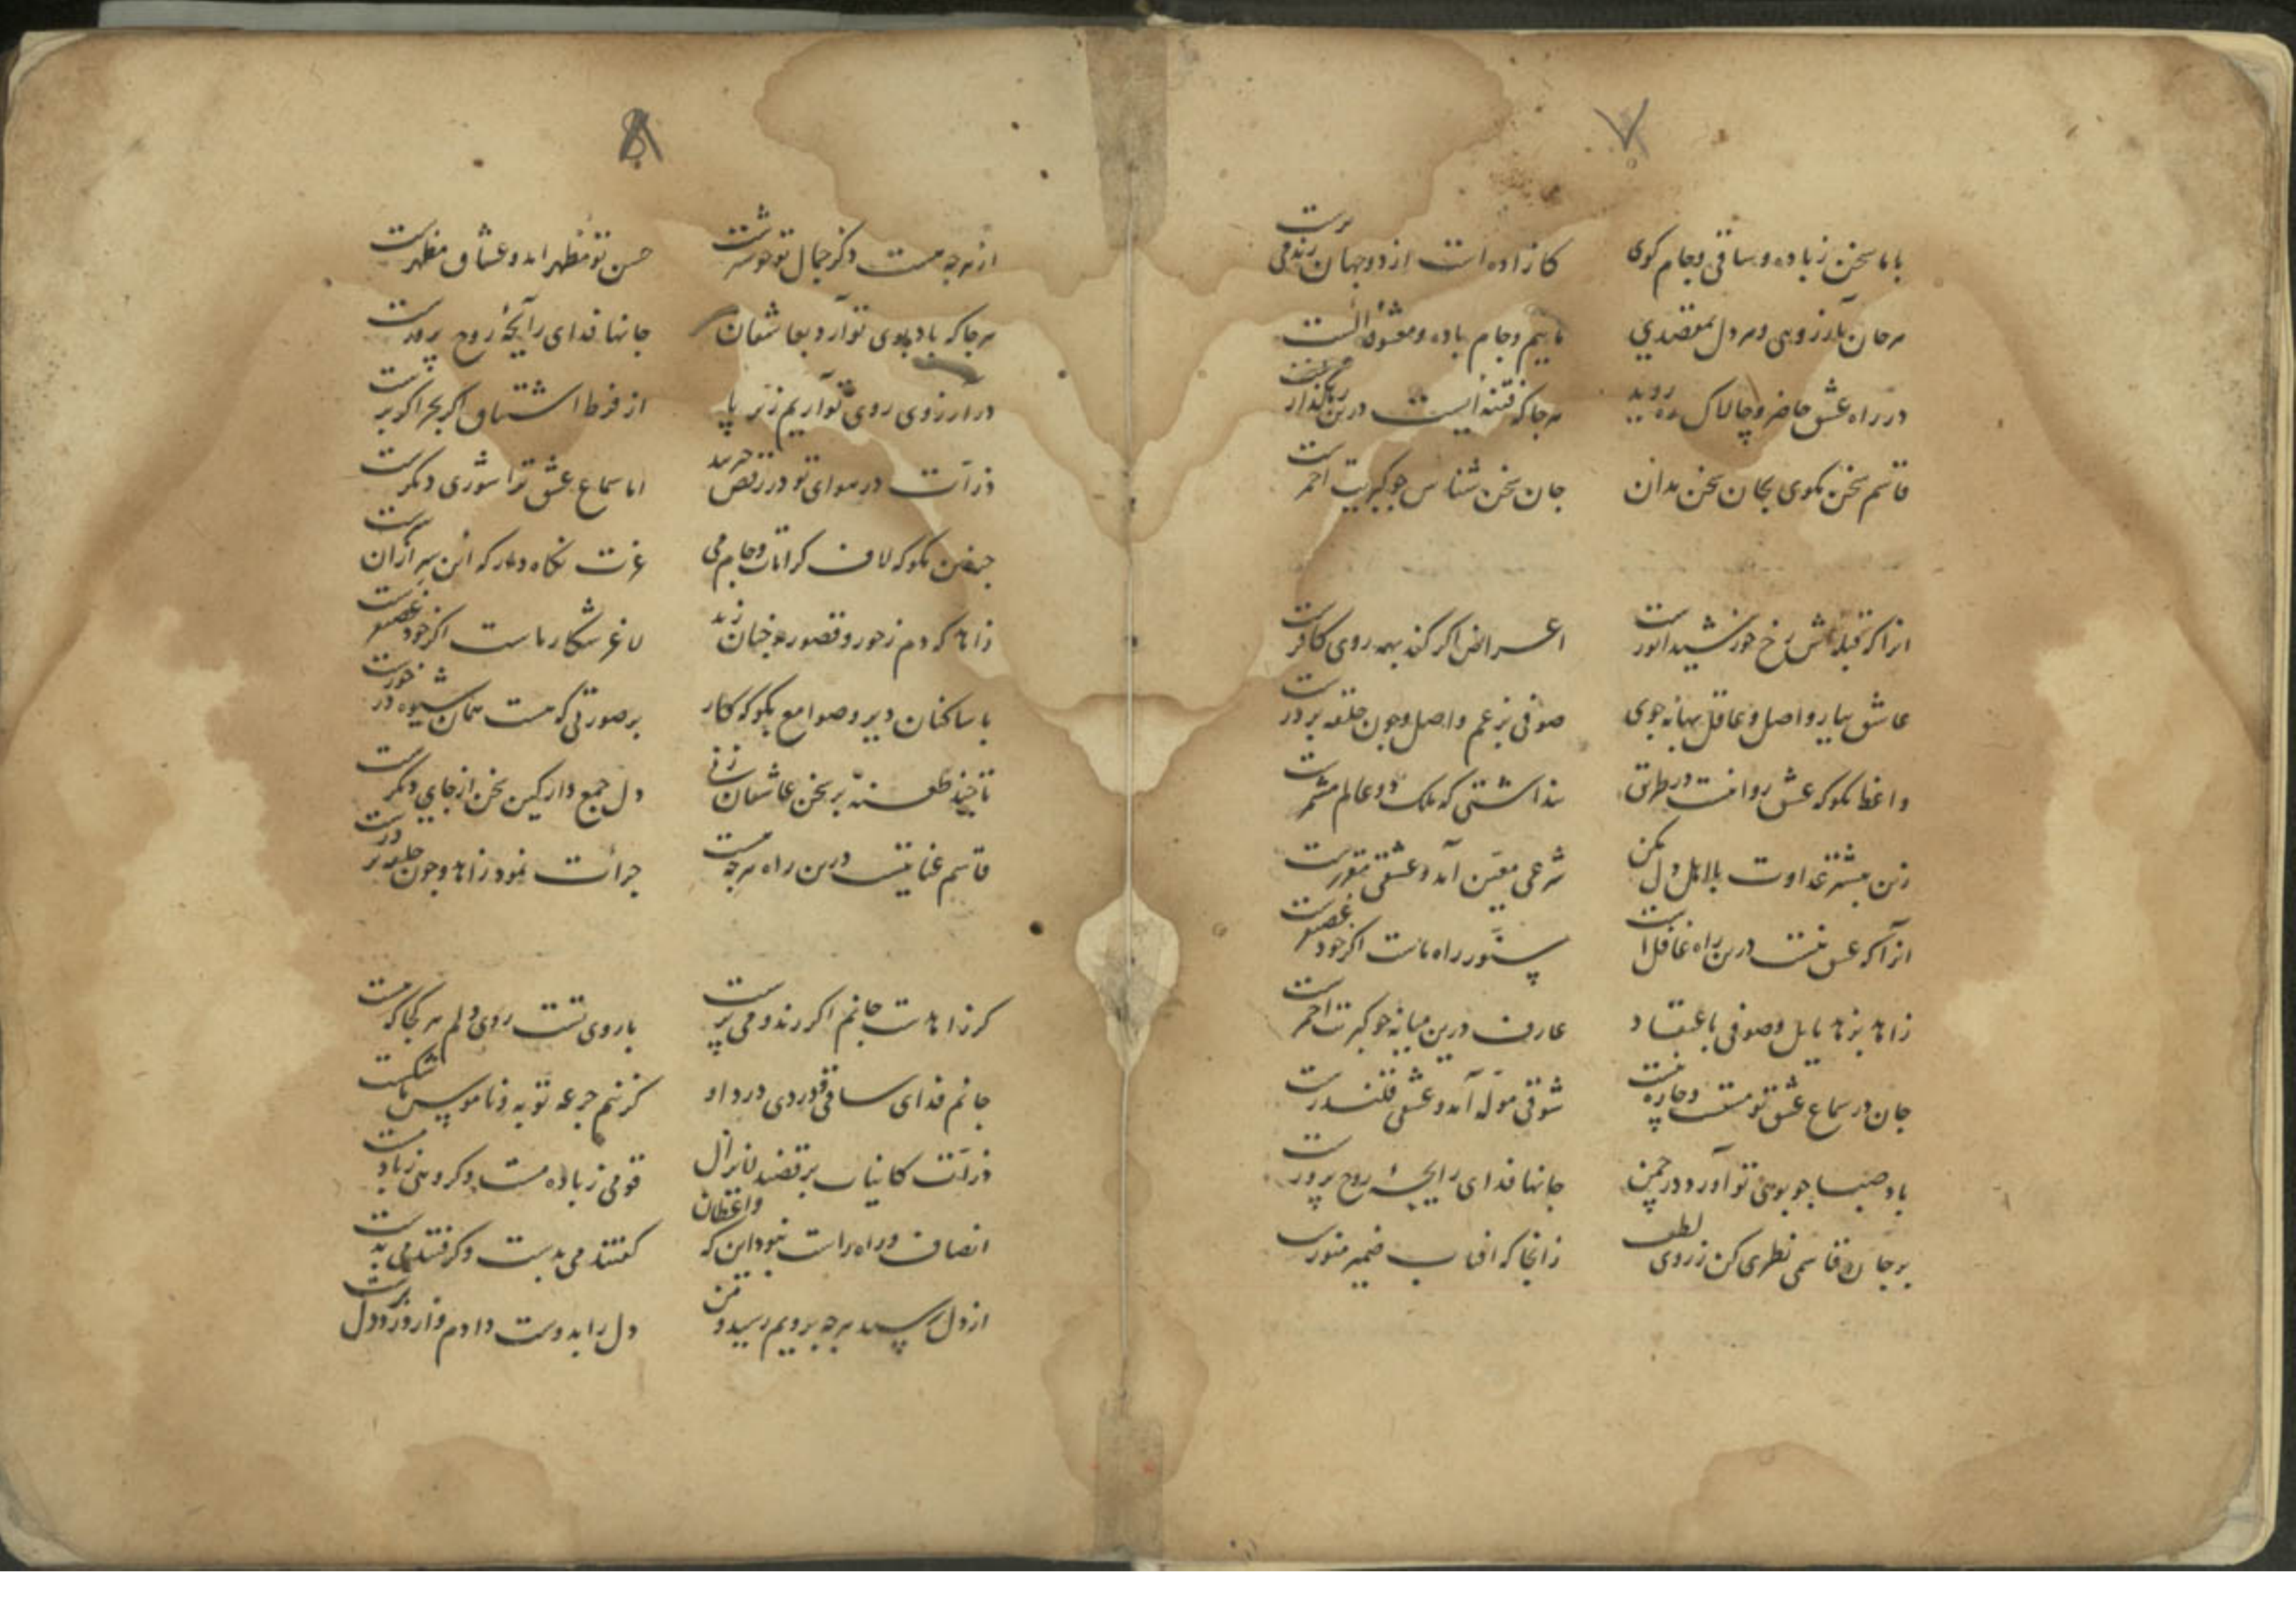 ۷
با ما سخن ز باده و ساقی و جام کوی
کازاده است از دو جهان رند می پرست
هر جان بآرزویی و هر دل بمقصدی
ماییم و جام باده و معشوقه الست
در راه عشق حاضر و چالاک رو
هر جا که فتنه ایست درین رهگذار
قاسم سخن مکوی بجان سخن مدان
جان سخن شناس چو کبریت احمرست
انرا که قبله اش رخ خورشید انورست
اعراض اگر کند بهمه روی کافرست
عاشق بیار واصل و عاقل بهانه جوی
صوفی بزعم واصل و چون حلقه بر درست
واعظ مکو که عشق روا نیست در طریق
نداشتی که ملک دو عالم
زین بیشتر عداوت با اهل دل مکن
شرعی معین آمد و عشقی مقررست
انرا که عشق نیست درین راه غافل است
ستور راه ماست اگر خود غضنفرست
زاهد بزهد مایل و صوفی باعتقاد
عارف درین میانه چو کبریت احمرست
جان در سماع عشق تو مستست و چاره نیست
شوقی موله آمد و عشقی قلندرست
باد صبا چو بوی تو آورد در چمن
جانها فدای رایحهٔ روح پرورست
بر جان قاسمی نظری کن ز روی لطف
زانجا که افتاب ضمیر منورست
۸
از هر چه هست ذکر جمال تو خوشترست
حسن تو مظهر آمد و عشاق مظهرست
هر جا که باد بوی تو آرد بعاشقان
جانها فدای رایحهٔ روح پرورست
در ارزوی روی تو آریم زیر پا
از فرط اشتیاق اگر بحر اگر برست
ذرات در هوای تو در رقص
اما سماع عشق ترا شوری دیگرست
مکو که لاف کرامات و جام می
عزت نکاه دار که این سر ازان سرست
زاهد که دم ز حور و قصور جنان زند
لاغر شکار ماست اگر خود غضنفرست
با ساکنان دیر و صوامع بکو که کار
بر صورتی که هست همان شیوه در خورست
تا چند طعنه بر سخن عاشقان زنی
دل جمع دار کین سخن از جای دیگرست
قاسم عنایتیست درین راه هر چه هست
جرات نمود زاهد و چون حلقه بر درست
کر زاهدست جانم اگر رند و می پرست
با روی تست روی دلم هر کجا که هست
جانم فدای ساقی و دردی درد او
کز نیم جرعه توبه و ناموس ما شکست
ذرات کاینات برقصند لایزال
قومی ز باده مست و کروهی ز یاد مست
انصاف و راه راست نبود این که واعظان
کفتند می بدست و کرفتند می بدست
از دل بپرسید هر چه برویم رسید و من
دل را بدوست دادم و از درد دل برست